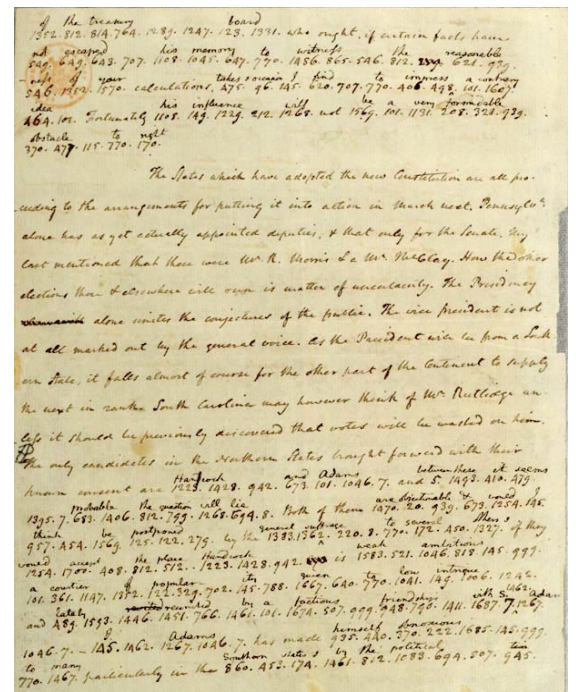 of the treasury board
1352. 812. 814. 764. 1289. 1247. 123. 1331. who ought, if certain facts have
not escaped his memory to witness the reasonable
549. 649. 643. 707. 1108. 1045. 647. 770. 1486. 865. 546. 812. 621. 939.
ness of your takes occasion I find to impress a contrary
546. 1352. 1570. calculations, 475. 96. 145. 620. 707. 770. 406. 498. 101. 1607.
idea his influence will be a very formidable
464. 101. Fortunately 1108. 149. 1229. 212. 1268. not 1569. 101. 1131. 208. 323. 939.
obstacle to right
370. 477. 115. 770. 170.
The States which have adopted the new Constitution are all pro-
ceeding to the arrangements for putting it into action in March next. Pennsylva.
alone has as yet actually appointed deputies, & that only for the Senate. My
last mentioned that these were Mr. R. Morris & a Mr. McClay. How the other
elections there & elsewhere will run is matter of uncertainty. The Presidency
alone unites the conjectures of the public. The vice president is not
at all marked out by the general voice. As the President will be from a South
ern State, it falls almost of course for the other part of the Continent to supply
the next in rank. South Carolina may however think of Mr. Rutledge un-
less it should be previously discovered that votes will be wasted on him.
The only candidates in the Northern States brought forward with their
Hancock and Adams between these it seems
known consent are 1223. 1428. 942. 673. 101. 1046. 7. and 5. 1493. 410. 479.
probable the question will lie are objectionable & would I
1395. 7. 683. 1406. 812. 799. 1268. 694. 8. Both of them 1070. 20. 939. 673. 1254. 145.
think be postponed general suffrage to several others
957. 454. 1569. 125. 122. 279. by the 1383. 1362. 220. 8. 770. 172. 450. 1327. of they
would accept the place Hancock weak ambitious
1254. 1700. 408. 812. 512. 1223. 1428. 942. is 1583. 521. 1046. 818. 145. 999.
a courtier of popularity given to low intrigue
101. 361. 1147. 1352. 122. 329. 702. 145. 788. 1667. 640. 770. 1041. 149. 1006. 1246.
and lately reunited by a factious friendship with S. Adams
and 489. 1553. 1446. 1451. 766. 1461. 101. 1674. 507. 999. 948. 796. 1411. 1687. 7. 1267.
J Adams himself obnoxious
1046. 7. - 145. 1462. 1267. 1046. 7. has made 935. 440. 370. 222. 1685. 145. 999.
to many Southern states by the political
770. 1467. particularly in the 860. 453. 174. 1461. 812. 1083. 694. 507. 945.